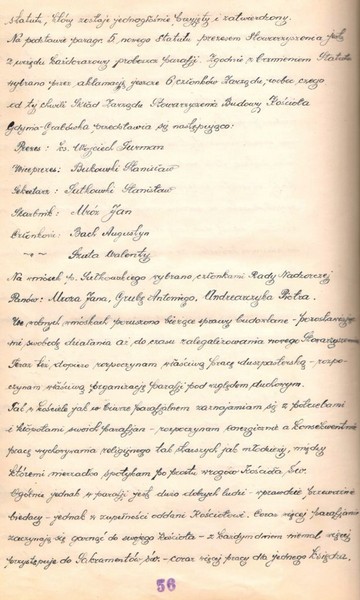 statutu, który zostaje jednogłośnie przyjęty i zatwierdzony.
Na podstawie paragr. 5, nowego Statutu prezesem Stowarzyszenia jest
z urzędu każdorazowy proboszcz parafji. Zgodnie z brzmieniem Statutu
wybrano przez aklamację jeszcze 6 członków Zarządu, wobec czego
od tej chwili skład Zarządu Stowarzyszenia Budowy Kościoła
Gdynia-Grabówka przedstawia się następująco:
Prezes: Ks. Wojciech Turman
Wiceprezes: Bukowski Stanisław
Sekretarz: Tutkowski Stanisław
Skarbnik: Mróz Jan
Członkowie: Bach Augustyn
Walenty
Na wniosek p. Tutkowskiego wybrano, członkami Rady Nadzorczej
Panów: Jana, Antoniego, Piotra.
We wolnych wnioskach poruszono bieżące sprawy budowlane -
swobodę działania aż do czasu zalegalizowania nowego Stowarzyszenia
Teraz też dopiero rozpoczynam właściwą pracę duszpasterską - rozpo-
czynam właściwą organizację parafji pod względem duchowym.
Tak w kościele jak w biurze parafjalnem zaznajamiam się z potrzebami
i kłopotami swoich parafjan - rozpoczynam energicznie a konsekwentnie
pracę wychowywania religijnego tak starszych jak młodzieży, między
któremi nierzadko spotykam po prostu wrogów Kościoła św.
Ogólnie jednak w parafji jest dużo dobrych ludzi - wprawdzie przeważnie
biedacy - jednak w zupełności oddani Kościołowi. Coraz więcej parafjanie
zaczynają się garnąć do swojego kościoła - z każdym dniem niemal więcej
przystępuje do Sakramentów św. - coraz więcej pracy dla jednego księdza.
56